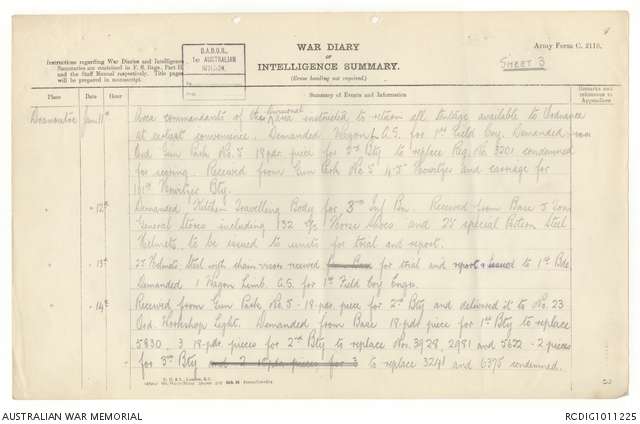 4
WAR DIARY
OF
INTELLIGENCE SUMMARY.
(Erase heading not required.)
Army Form C. 2118.
SHEET 3
Instructions regarding War Diaries and Intelligence
Summaries are contained in F. S. Regs., Part II.
and the Staff Manual respectively. Title pages
will be prepared in manuscript.
D.A.D.O.S.,
1st AUSTRALIAN
DIVISION.
Place
Date
Hour
Summary of Events and Information
Remarks and
references to
Appendices
Jan 11th
Area commandants of the Divisional area instructed to return all tentage available to Ordnance
at earliest convenience. Demanded Wagon L. G.S. for 1st Field Coy. Demanded from
Ord Gun Park No. 5 18 pdr. piece for 3rd Bty to replace Reg. No 3201 condemned
for scoring. Received from Gun Park No 5 4.5 Howitzer and carriage for
101st Howitzer Bty.
" " 12th
Demanded Kitchen Travelling Body for 3rd Inf Bn. Received from Base 5 tons
General Stores including 132 c/s Horse Shoes and 25 special pattern Steel
Helmets, to be issued to units for trial and report.
" " 13th
25 Helmets Steel with chain visors received for trial and report & issued to 1st Bde.
Demanded 1 Wagon Limb. G.S. for 1st Field Coy Engrs.
" " 14th
Received from Gun Park No. 5 - 18 pdr. piece for 2nd Bty and delivered it to No. 23
Ord. Workshop Light. Demanded from Base 18 pdr piece for 1st Bty to replace
5830, 3 18 pdr. pieces for 2nd Bty to replace Nos. 3928, 2981 and 5622 - 2 pieces
for 3rd Bty and 2 18 pdr pieces for 3 to replace 3241 and 6375 condemned.
AUSTRALIAN WAR MEMORIAL
RCDIG1011225